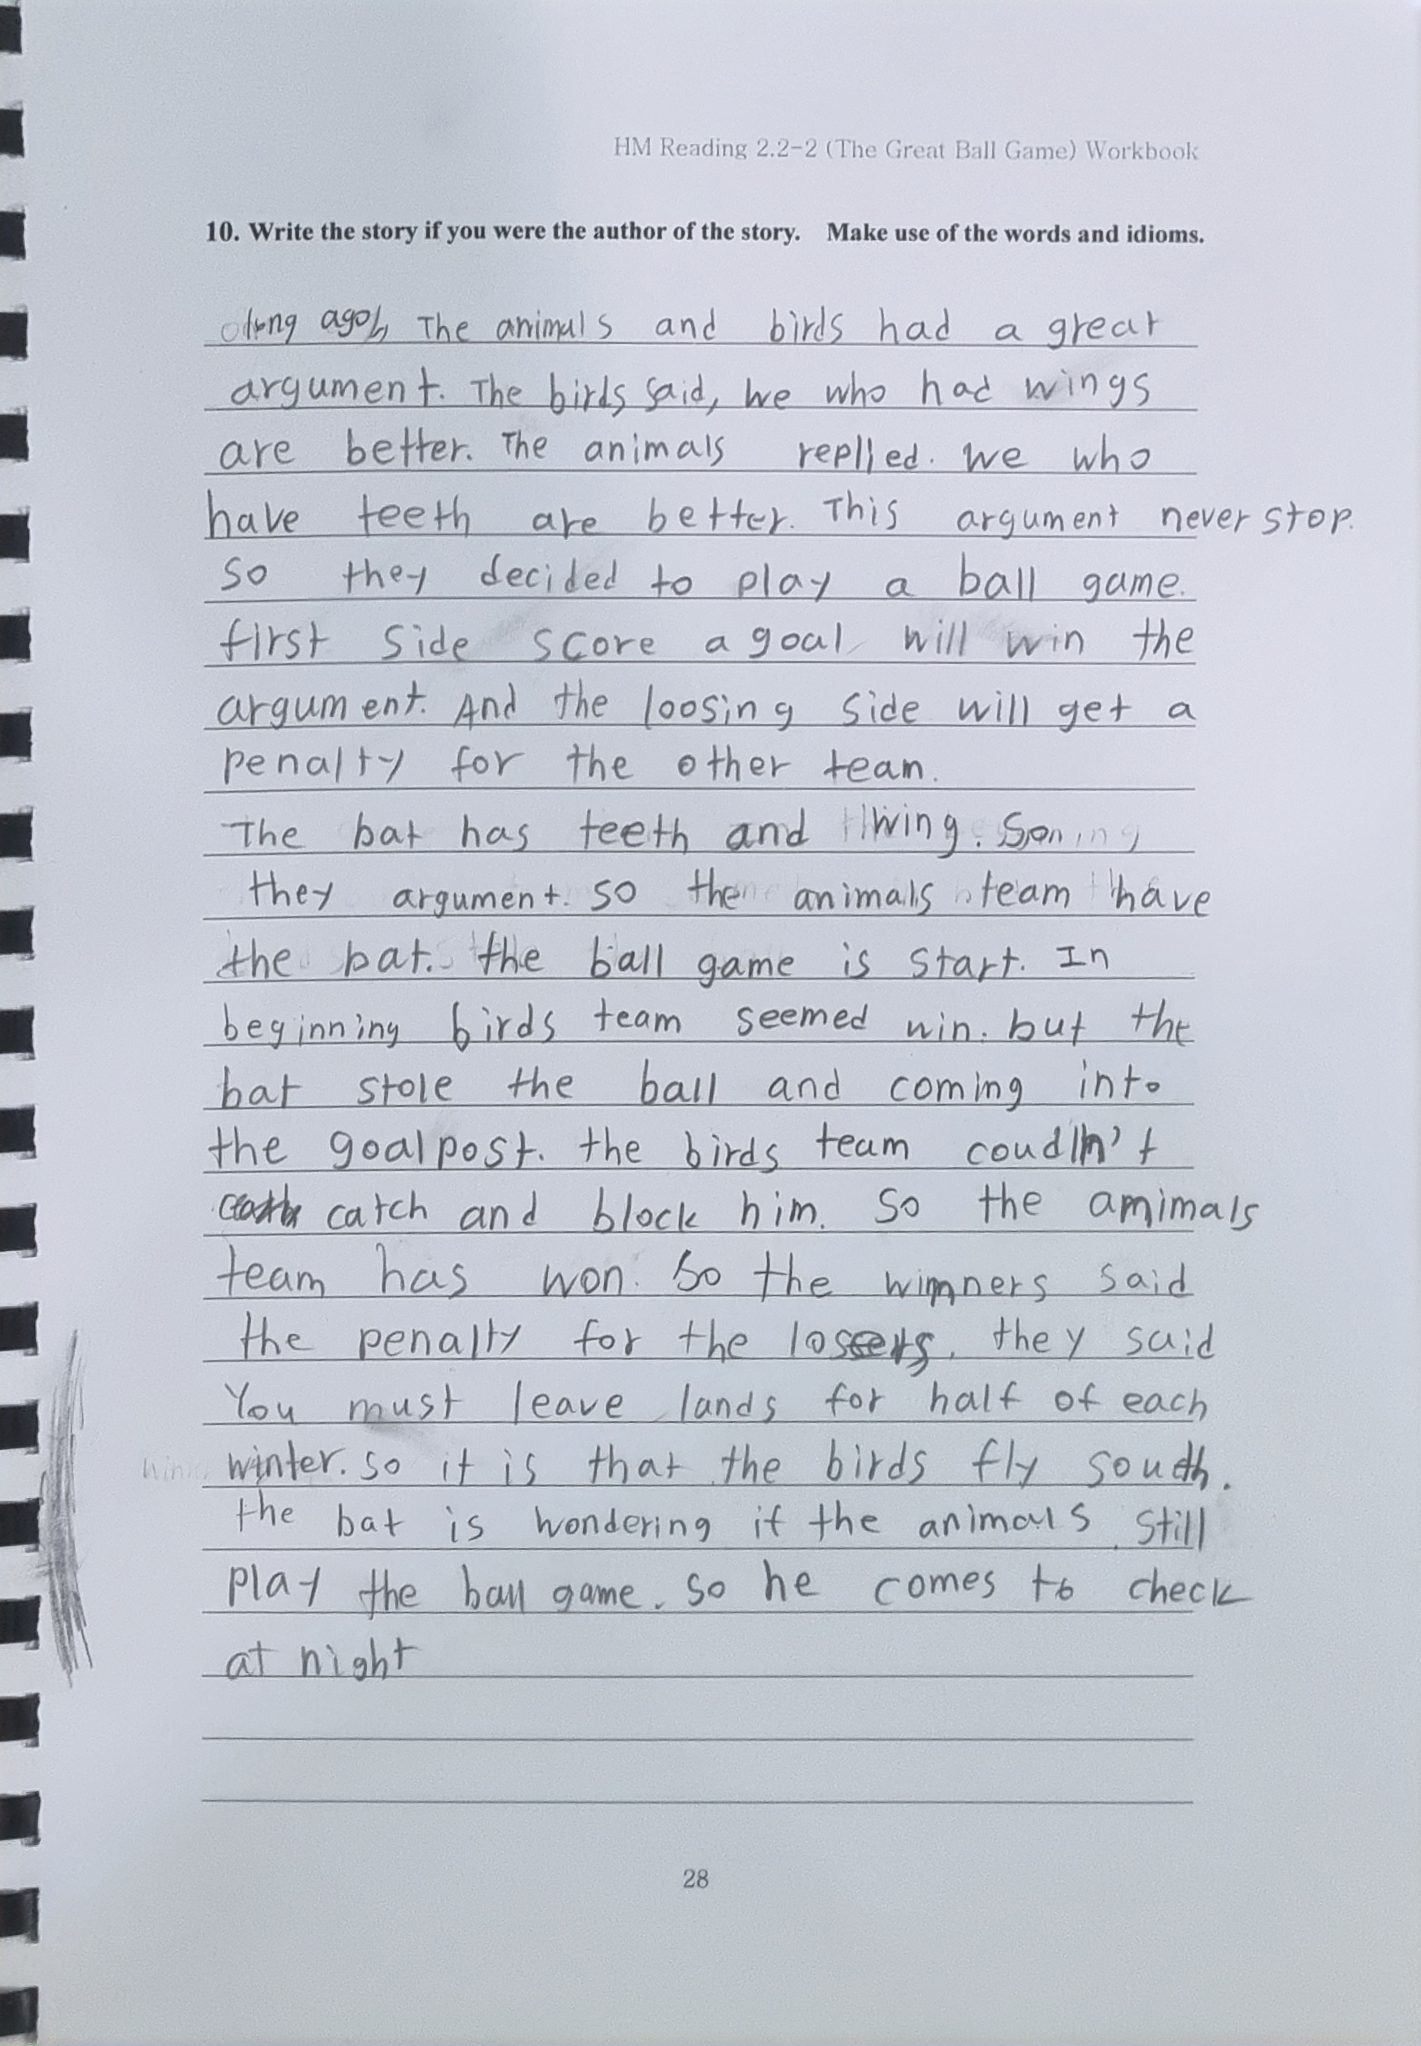 HM Reading 2.2-2 (The Great Ball Game) Workbook
10. Write the story if you were the author of the story. Make use of the words and idioms.
long ago, The animals and birds had a great
argument. The birds said, We who had wings
are better. The animals replied. We who
have teeth are better. This argument never stop.
So they decided to play a ball game.
first side score a goal will win the
argument. And the loosing side will get a
penalty for the other team.
The bat has teeth and wing. So
they argument. so the animals team have
the bat. the ball game is start. In
beginning birds team seemed win. but the
bat stole the ball and coming into
the goalpost. the birds team coudln't
catch and block him. So the amimals
team has won. So the winners said
the penalty for the losers. they said
You must leave lands for half of each
winter. so it is that the birds fly south.
the bat is wondering if the animals still
play the ball game. so he comes to check
at night
28